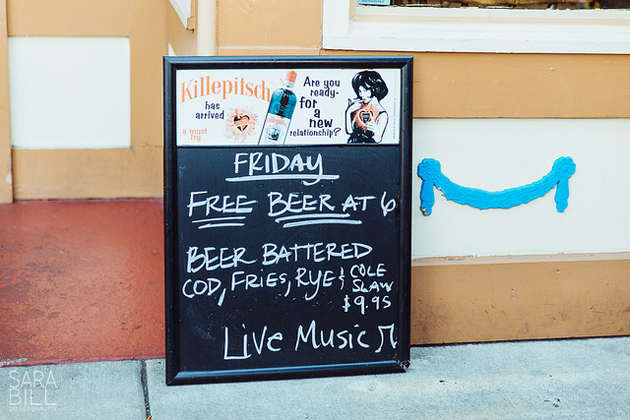 Killepitsch
has
arrived
a must
try
Are you
ready-
for
a
new
relationship?
FRIDAY
FREE BEER AT 6
BEER BATTERED
COD, FRIES, RYE & COLE
SLAW
$9.95
Live Music
SARA
BILL
photography